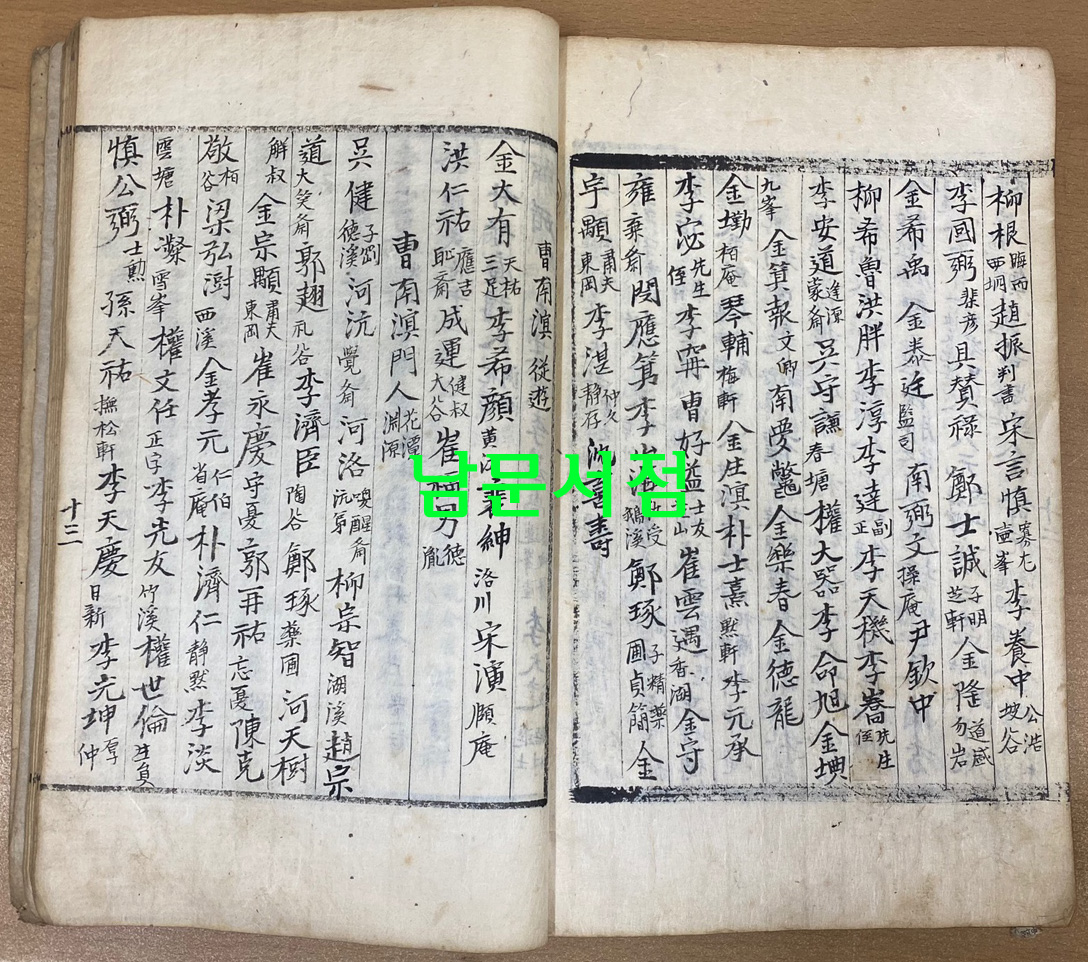 柳根 晦而 西坰 趙振 判書 宋言慎 寡尤 壺峯 李養中 公浩 坡谷
李国弼 棐彦 具賛祿 鄭士誠 子明 芝軒 金隆 道盛 勿岩
金希禹 金泰廷 監司 南弼文 操庵 尹欽中
柳希魯 洪胖 李淳 李達 副正 李天機 李喬 先生 侄
李安道 逢源 蒙斎 吳守謙 春塘 權大器 李命旭 金㙉
九峯 金箕報 文卿 南夢鰲 金樂春 金德龍
金㘽 栢庵 琴輔 梅軒 金庄滇 朴士熹 黙軒 李元承
李宓 先生 侄 李寗 曺好益 士友 山 崔雲遇 香湖 金守
雍 棄斎 閔應箕 李 受 鵝溪 鄭琢 子精 藥圃 貞簡 金
宇顒 肅夫 東岡 李湛 仲久 静存 喜壽
曺南溟 從遊
金大有 天祐 三足 李希顔 黄 紳 洛川 宋濱 願庵
洪仁祐 應吉 恥斎 成運 健叔 大谷 崔 德胤
曺南溟門人 花潭 淵源
吳健 子剛 德溪 河沆 覺斎 河洛 喚醒斎 沆弟 柳宗智 湖溪 趙宗
道 大笑斎 郭趄 礼谷 李濟臣 陶谷 鄭琢 藥圃 河天樹
解叔 金宗顒 肅夫 東岡 崔永慶 守憂 郭再祐 忘憂 陳克
敬 栢谷 梁弘澍 西溪 金孝元 仁伯 省庵 朴濟仁 静黙 李淡
雲塘 朴㵢 雪峯 權文任 正字 李先友 竹溪 權世倫 生員
慎公弼 士勲 孫天祐 撫松軒 李天慶 日新 李充坤 厚仲
十三
남문서점